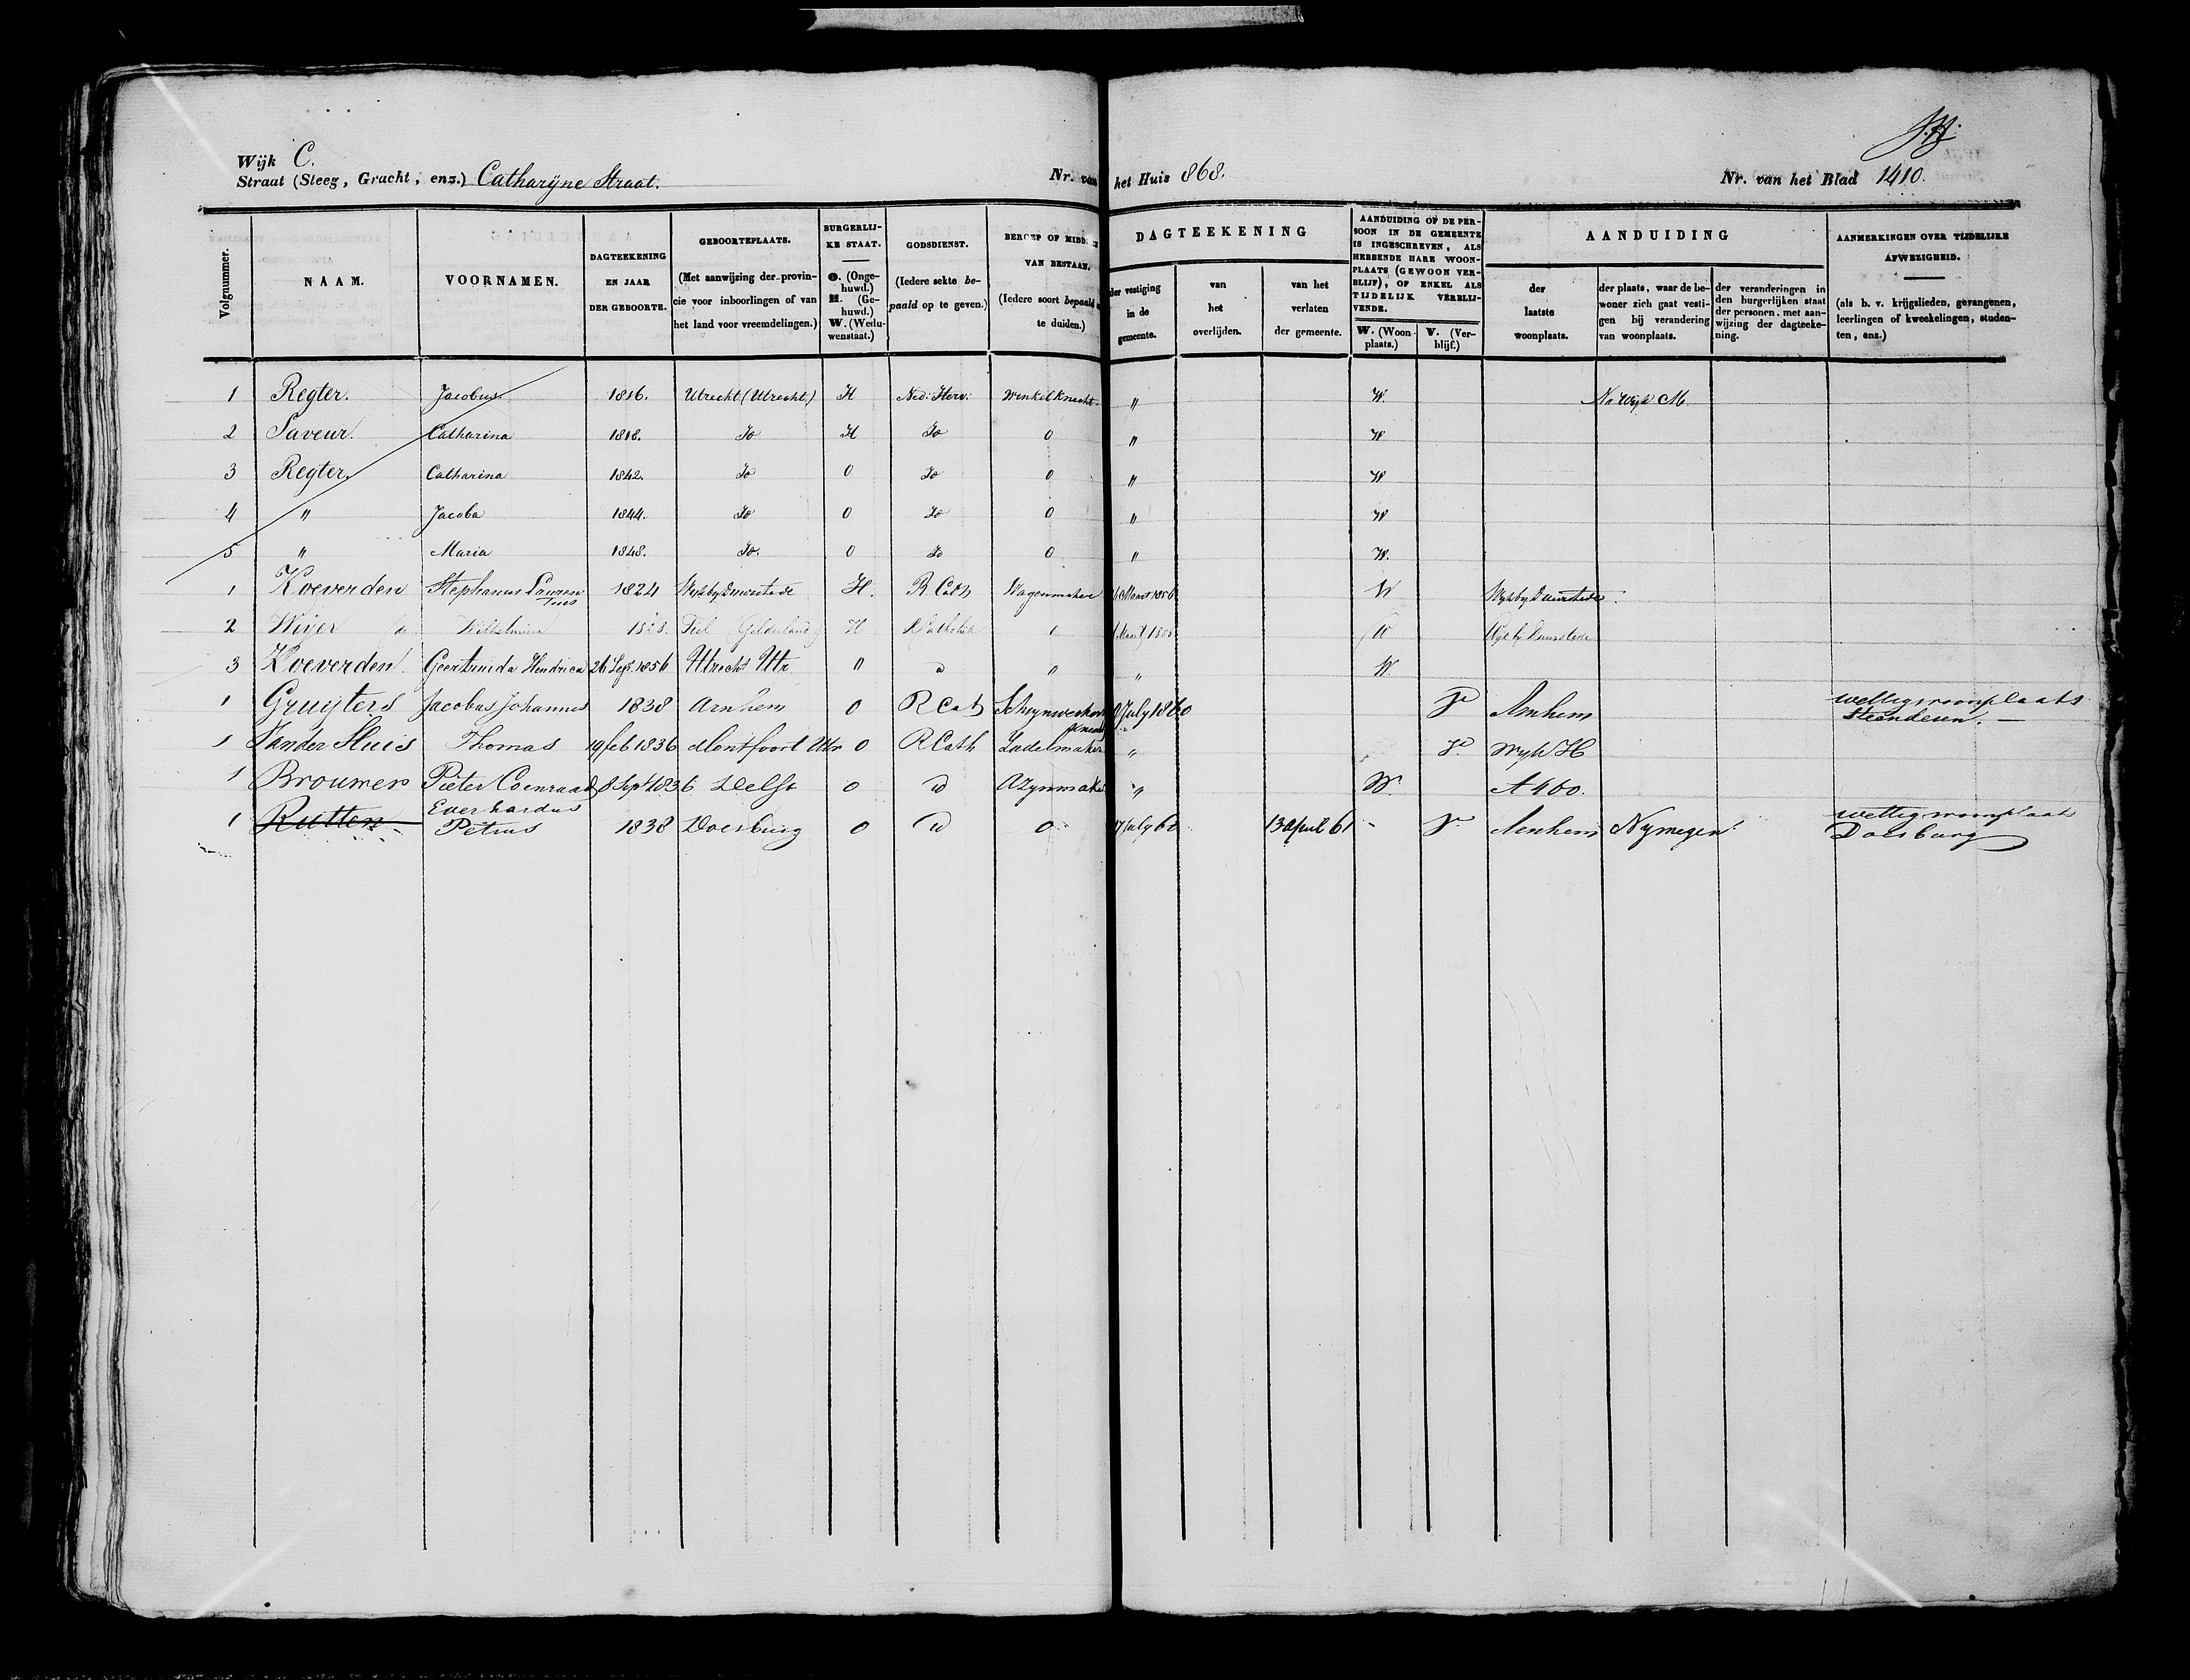 Wijk C.
Straat (Steeg, Gracht, enz.) Catharÿne Straat.
Nr. van het Huis 868.
Nr. van het Blad 1410.
Volgnummer.
NAAM.
VOORNAMEN.
DAGTEEKENING
EN JAAR
DER GEBOORTE.
GEBOORTEPLAATS.
(Met aanwijzing der provin-
cie voor inboorlingen of van
het land voor vreemdelingen.)
BURGERLIJ-
KE STAAT.
O. (Onge-
huwd.)
H. (Ge-
huwd.)
W. (Wedu-
wenstaat.)
GODSDIENST.
(Iedere sekte be-
paald op te geven.)
BEROEP OF MIDD
VAN BESTAAN.
(Iedere soort bepaald
te duiden.)
DAGTEEKENING
der vestiging
in de
gemeente.
van
het
overlijden.
van het
verlaten
der gemeente.
AANDUIDING OF DE PER-
SOON IN DE GEMEENTE
IS INGESCHREVEN, ALS
HEBBENDE HARE WOON-
PLAATS (GEWOON VER-
BLIJF), OF ENKEL ALS
TIJDELIJK VERBLIJ-
VENDE.
W. (Woon-
plaats.)
V. (Ver-
blijf.)
AANDUIDING
der
laatste
woonplaats.
der plaats, waar de be-
woner zich gaat vesti-
gen bij verandering
van woonplaats.
der veranderingen in
den burgerlijken staat
der personen, met aan-
wijzing der dagteeke-
ning.
AANMERKINGEN OVER TIJDELIJKE
AFWEZIGHEID.
(als b. v. krijgslieden, gevangenen,
leerlingen of kweekelingen, studen-
ten, enz.)
1 Regter. Jacobus. 1816. Utrecht (Utrecht) H Ned: Herv: Winkelknecht. " W. Na Wyk M
2 Saveur. Catharina 1818. Do H Do 0 " W
3 Regter. Catharina 1842. Do 0 Do 0 " W
4 " Jacoba 1844. Do 0 Do 0 " W
5 " Maria 1848. Do. 0 Do 0 " W.
1 Koeverden Stephanus Lauren
tius 1824 Wykbyduurstede H. R Cath Wagenmaker Maart 1856 W Wykbyduurstede
2 Wijer de Wilhelmina 1828. Tiel (Gelderland) H R Catholiek " Maart 1856 W Wykbyduurstede
3 Koeverden Geertruida Hendrica 26 Sept. 1856 Utrecht Utr " " " " W.
1 Gruyters Jacobus Johannes 1838 Arnhem 0 R Cat Schrynwerker July 1860 Arnhem wettig woonplaats
Steenderen. —
1 Van der Sluis Thomas 19 feb 1836 Montfoort Utr 0 R Cath Zadelmaker " Wyk H
1 Brouwer Pieter Coenraad 8 Sept 1836 Delft 0 id Azynmaker " W. A 400.
1 Rutten Everhardus
Petrus 1838 Doesburg 0 id 0 17 July 60 13 April 61 - Arnhem Nymegen wettig woonplaats
Doesburg